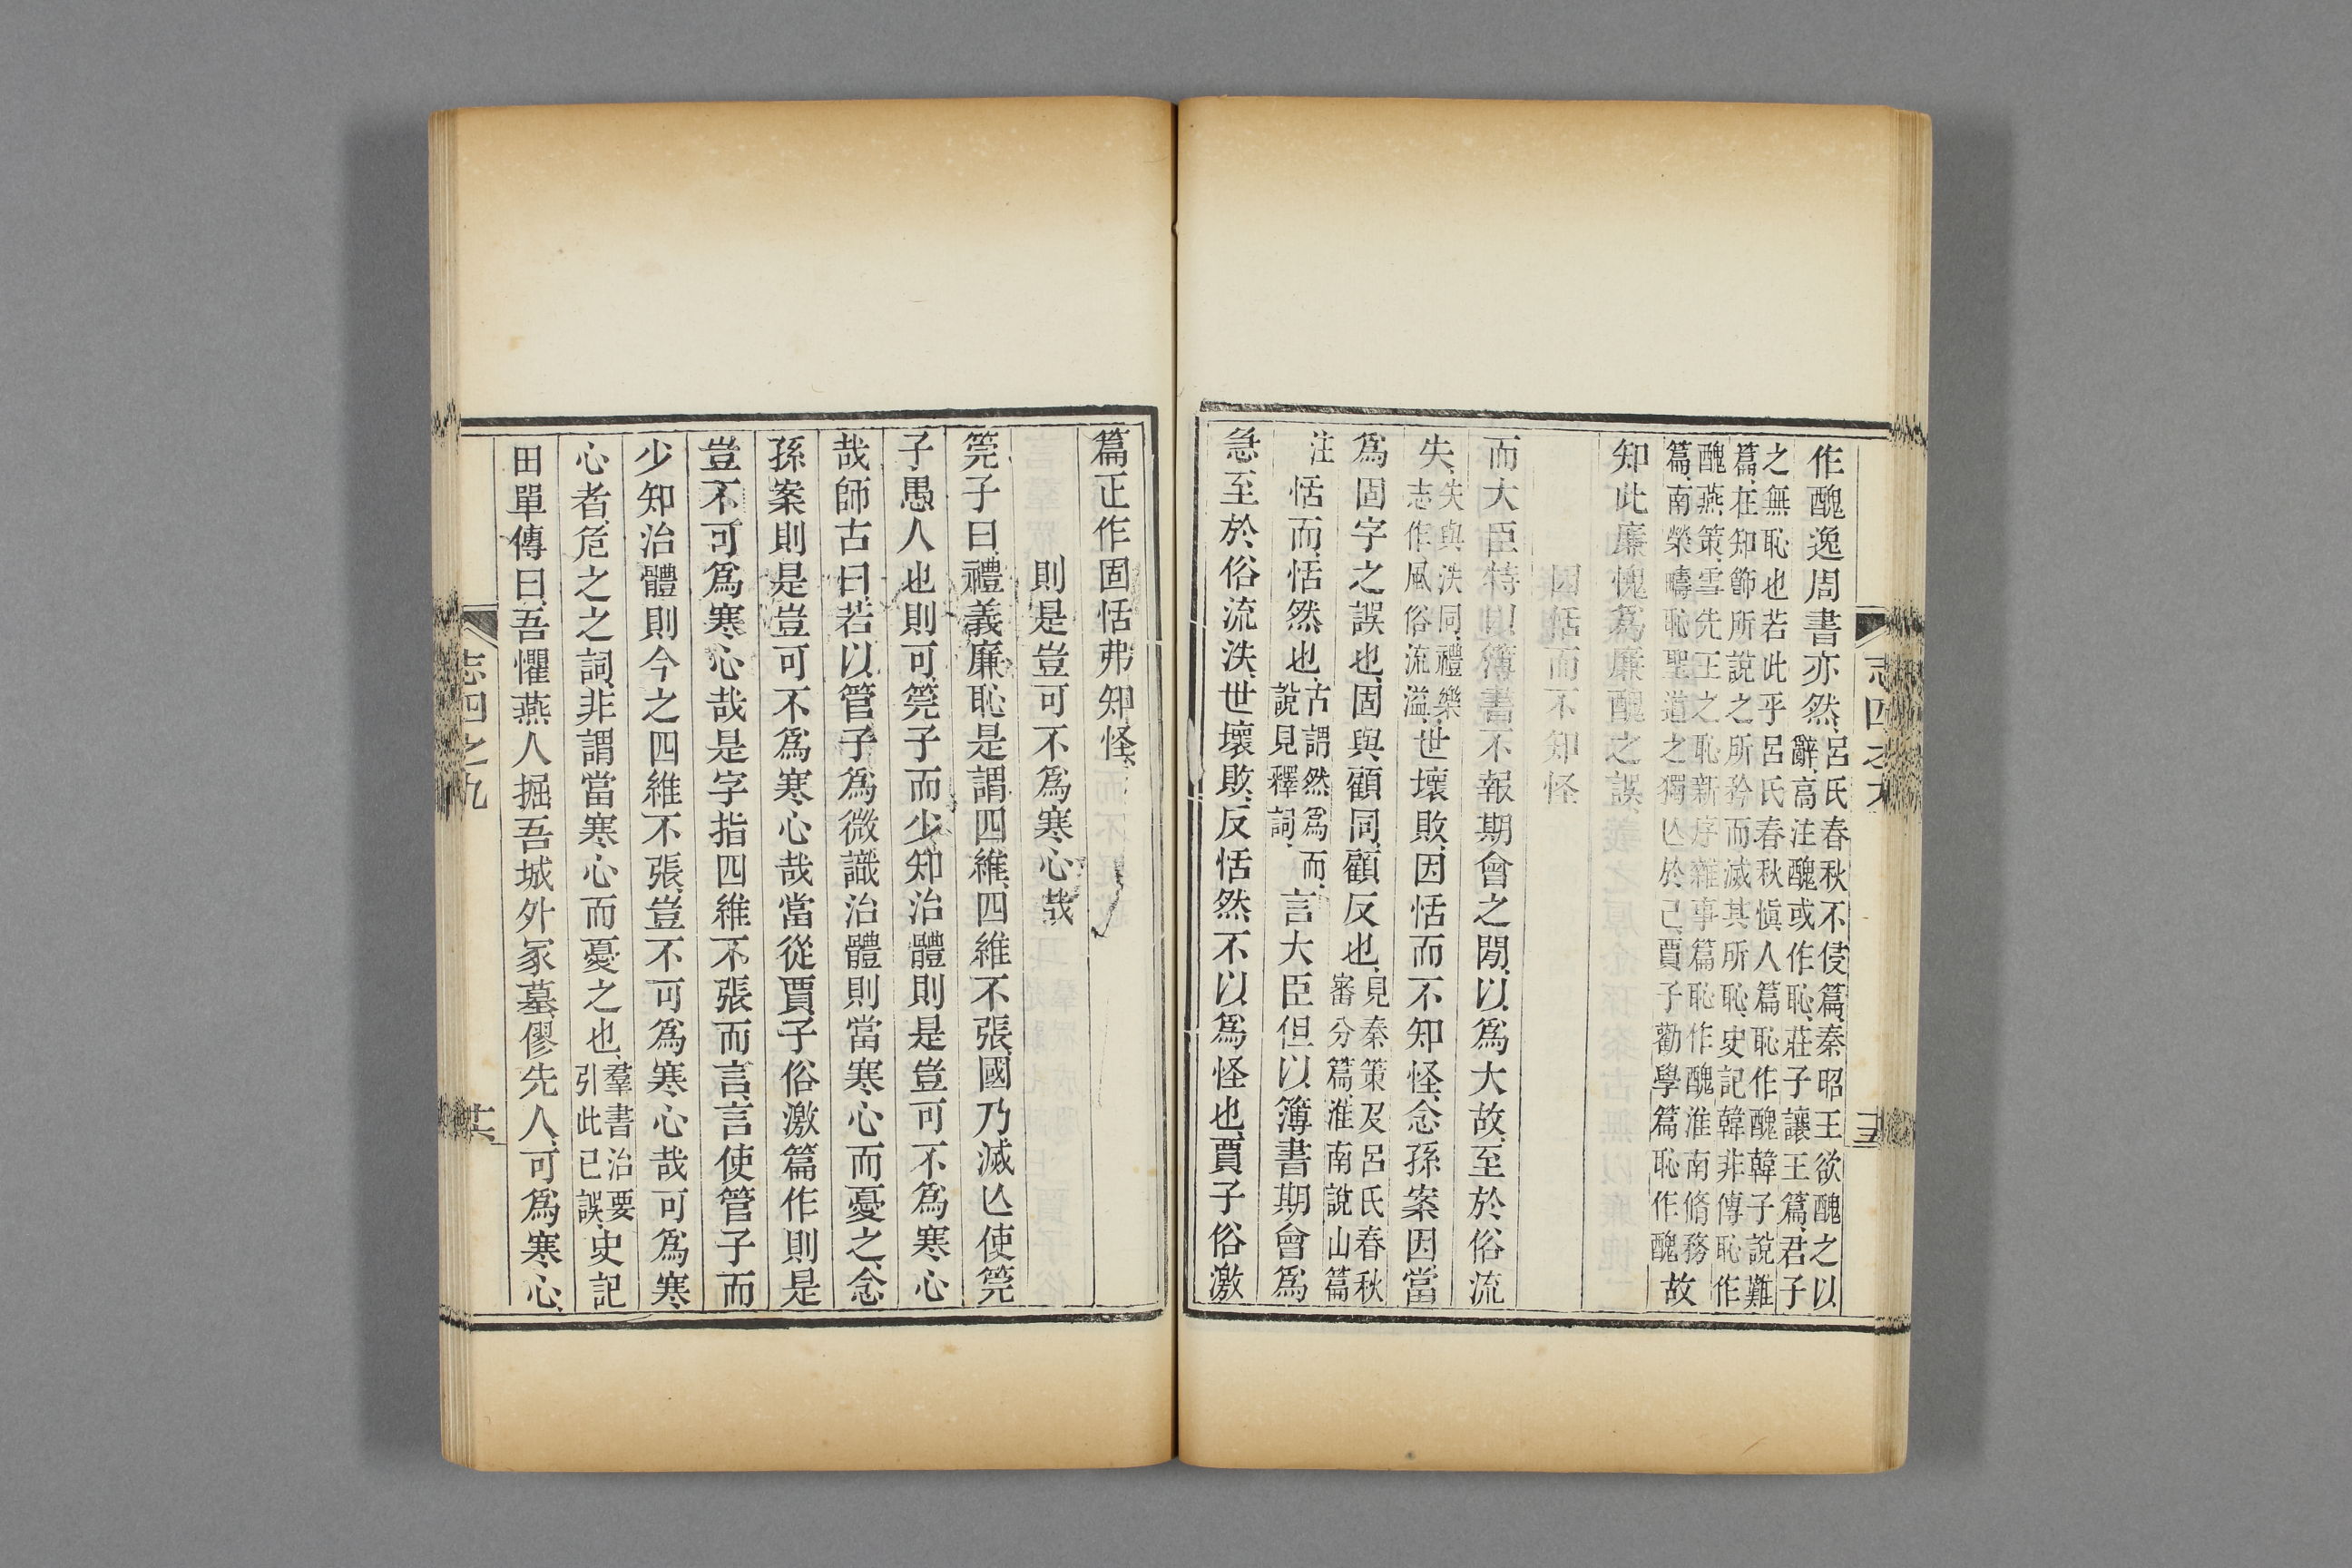 志四之九
作醜逸周書亦然、呂氏春秋不侵篇、秦昭王欲醜之以
辭、高注醜或作恥、莊子讓王篇、君子
之無恥也若此乎呂氏春秋愼人篇恥作醜韓子說難
篇、在知飾所說之所矜而滅其所恥、史記韓非傳恥作
醜燕策、雪先王之恥新序雜事篇恥作醜淮南脩務
篇、南榮疇恥聖道之獨亾於己、賈子勸學篇恥作醜故
知此廉愧爲廉醜之誤、
因恬而不知怪
而大臣特以簿書不報期會之閒、以爲大故、至於俗流
失、失與泆同、禮樂
志作風俗流溢、世壞敗、因恬而不知怪、念孫案因、當
爲固字之誤也、固與顧同、顧反也、見秦策及呂氏春秋
審分篇、淮南說山篇
注恬而、恬然也、古謂然爲而、
說見釋詞、言大臣但以簿書期會爲
急至於俗流泆、世壞敗、反恬然不以爲怪也、賈子俗激
篇正作固恬弗知怪、
則是豈可不爲寒心哉
筦子曰、禮義廉恥是謂四維、四維不張、國乃滅亾使筦
子愚人也則可、筦子而少知治體則是豈可不爲寒心
哉師古曰、若以管子爲微識治體則當寒心而憂之、念
孫案則是豈可不爲寒心哉當從賈子俗激篇作則是
豈不可爲寒心哉是字指四維不張而言、言使管子而
少知治體則今之四維不張、豈不可爲寒心哉可爲寒
心者、危之之詞、非謂當寒心而憂之也、羣書治要
引此已誤、史記
田單傳曰、吾懼燕人掘吾城外冢墓、僇先人、可爲寒心、
志四之九